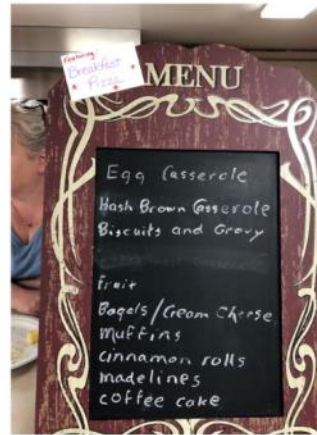 Featuring:
Breakfast
Pizza
MENU
Egg Casserole
Hash Brown Casserole
Biscuits and Gravy
Fruit
Bagels/Cream Cheese
Muffins
cinnamon rolls
madelines
coffee cake